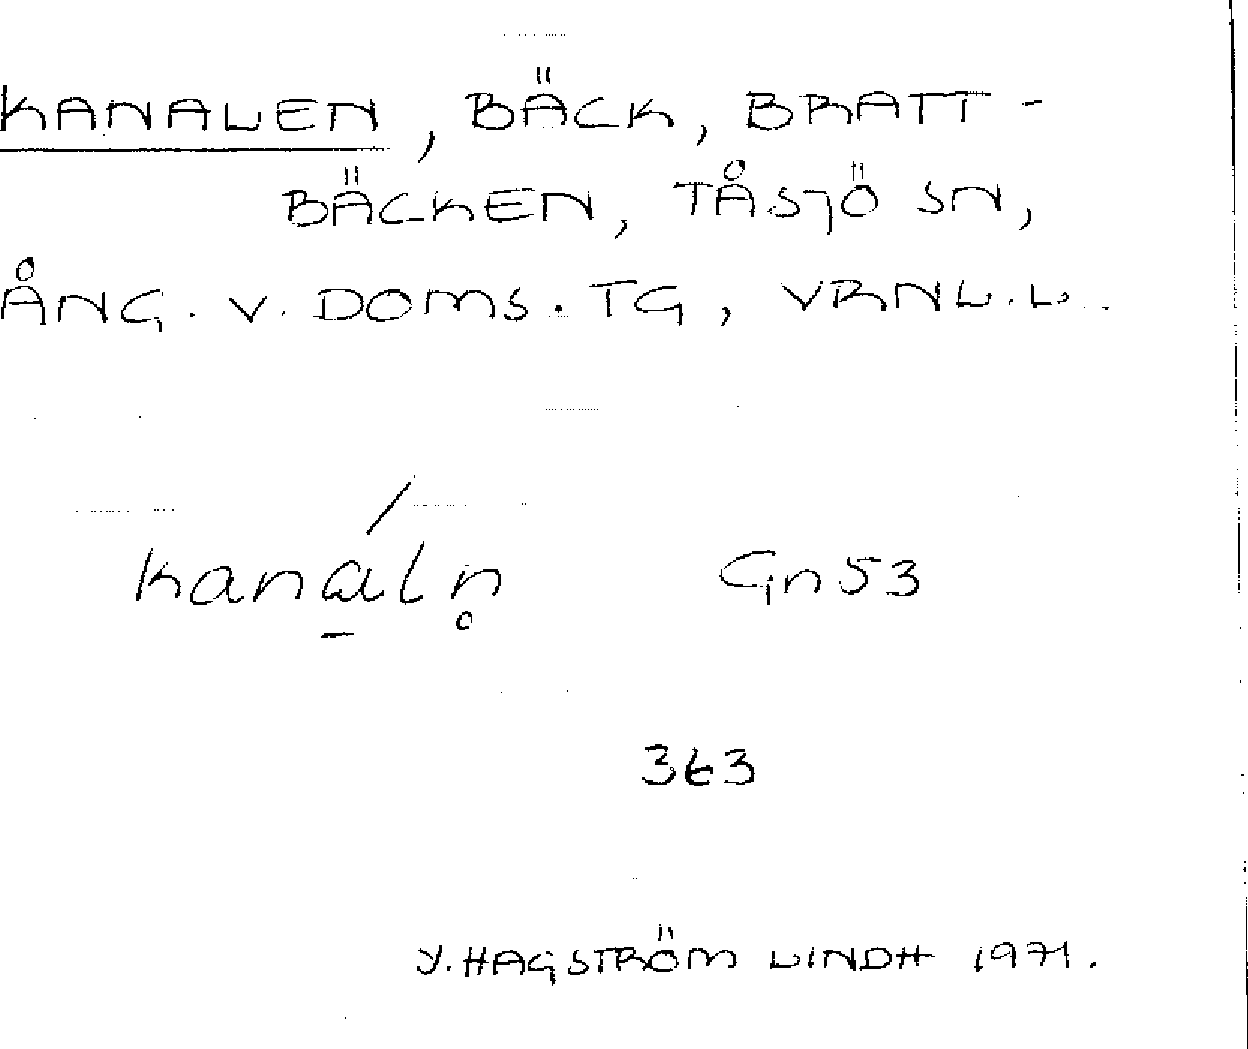 KANALEN, BÄCK, BRATT-
BÄCKEN, TÅSJÖ SN,
ÅNG. V. DOMS. TG, VRNL.L.
kanáln̥ Gn53
363
Y. HAGSTRÖM LINDH 1971.